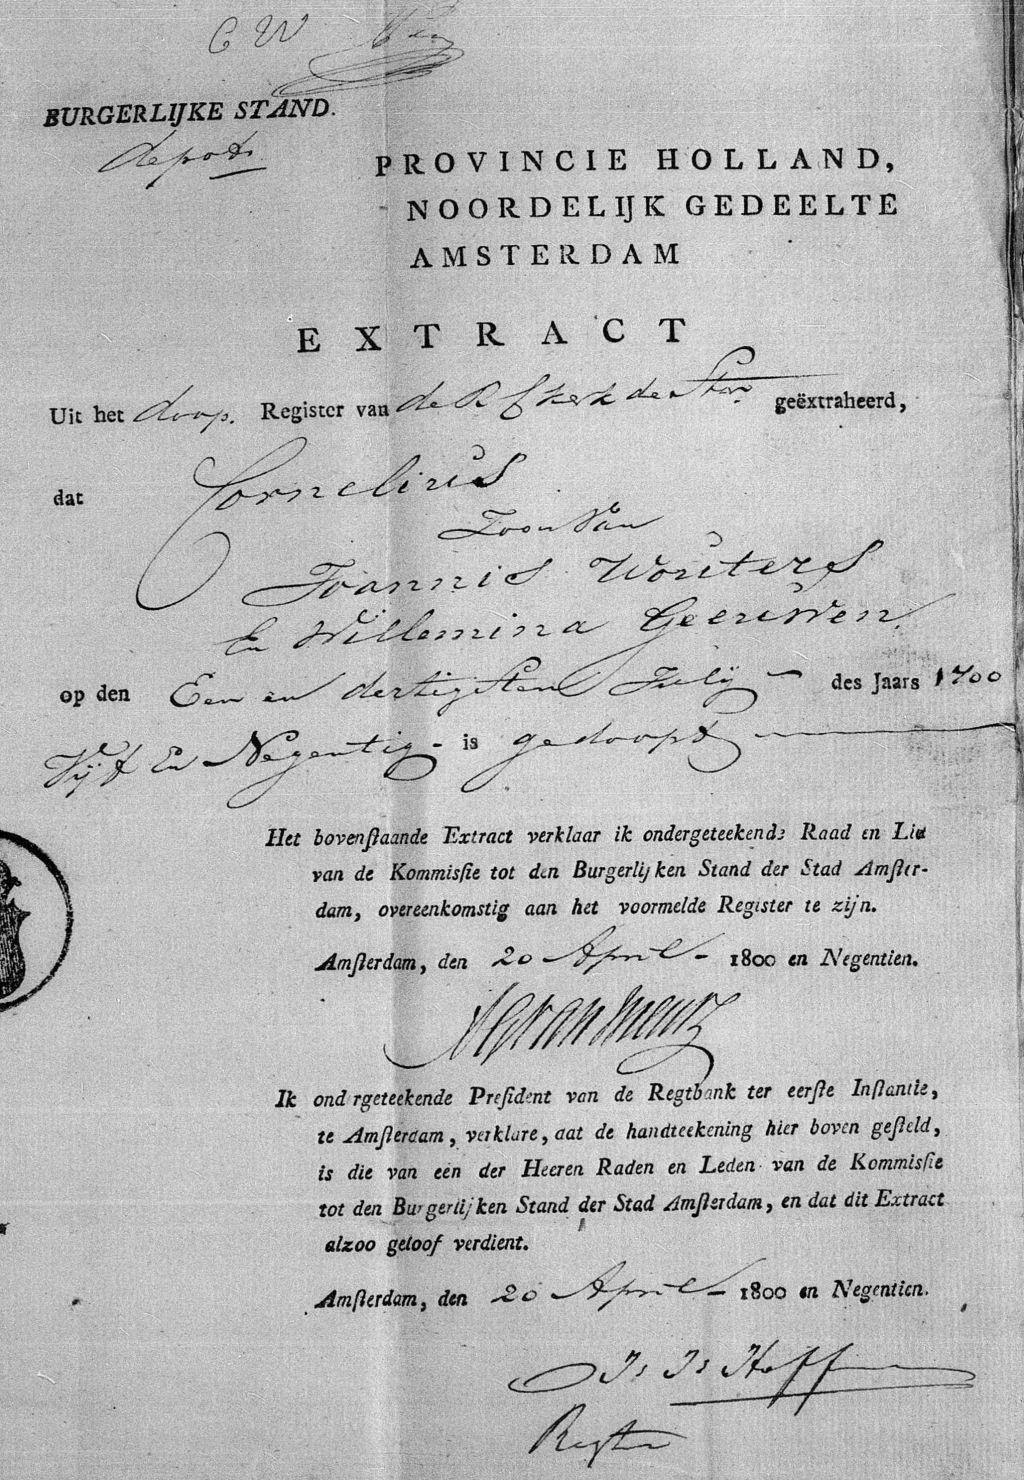 C W
BURGERLIJKE STAND.
PROVINCIE HOLLAND,
NOORDELIJK GEDEELTE
AMSTERDAM
EXTRACT
Uit het doop. Register van de R f kerk de Star geëxtraheerd,
dat Cornelius
Zoon Van
Joannis Wouters
En Willemina Geeruwen.
op den Een en dertigsten July – des Jaars 1700
Vijf En Negentig – is gedoopt
Het bovenſtaande Extract verklaar ik ondergeteekende Raad en Lid
van de Kommisſie tot den Burgerlijken Stand der Stad Amſter-
dam, overeenkomstig aan het voormelde Register te zijn.
Amſterdam, den 20 April – 1800 en Negentien.
Ik ond rgeteekende Preſident van de Regtbank ter eerſte Inſtantie,
te Amſterdam, verklare, dat de handteekening hier boven geſteld,
is die van een der Heeren Raden en Leden van de Kommisſie
tot den Burgerlijken Stand der Stad Amſterdam, en dat dit Extract
alzoo geloof verdient.
Amſterdam, den 20 April – 1800 en Negentien.
Regter